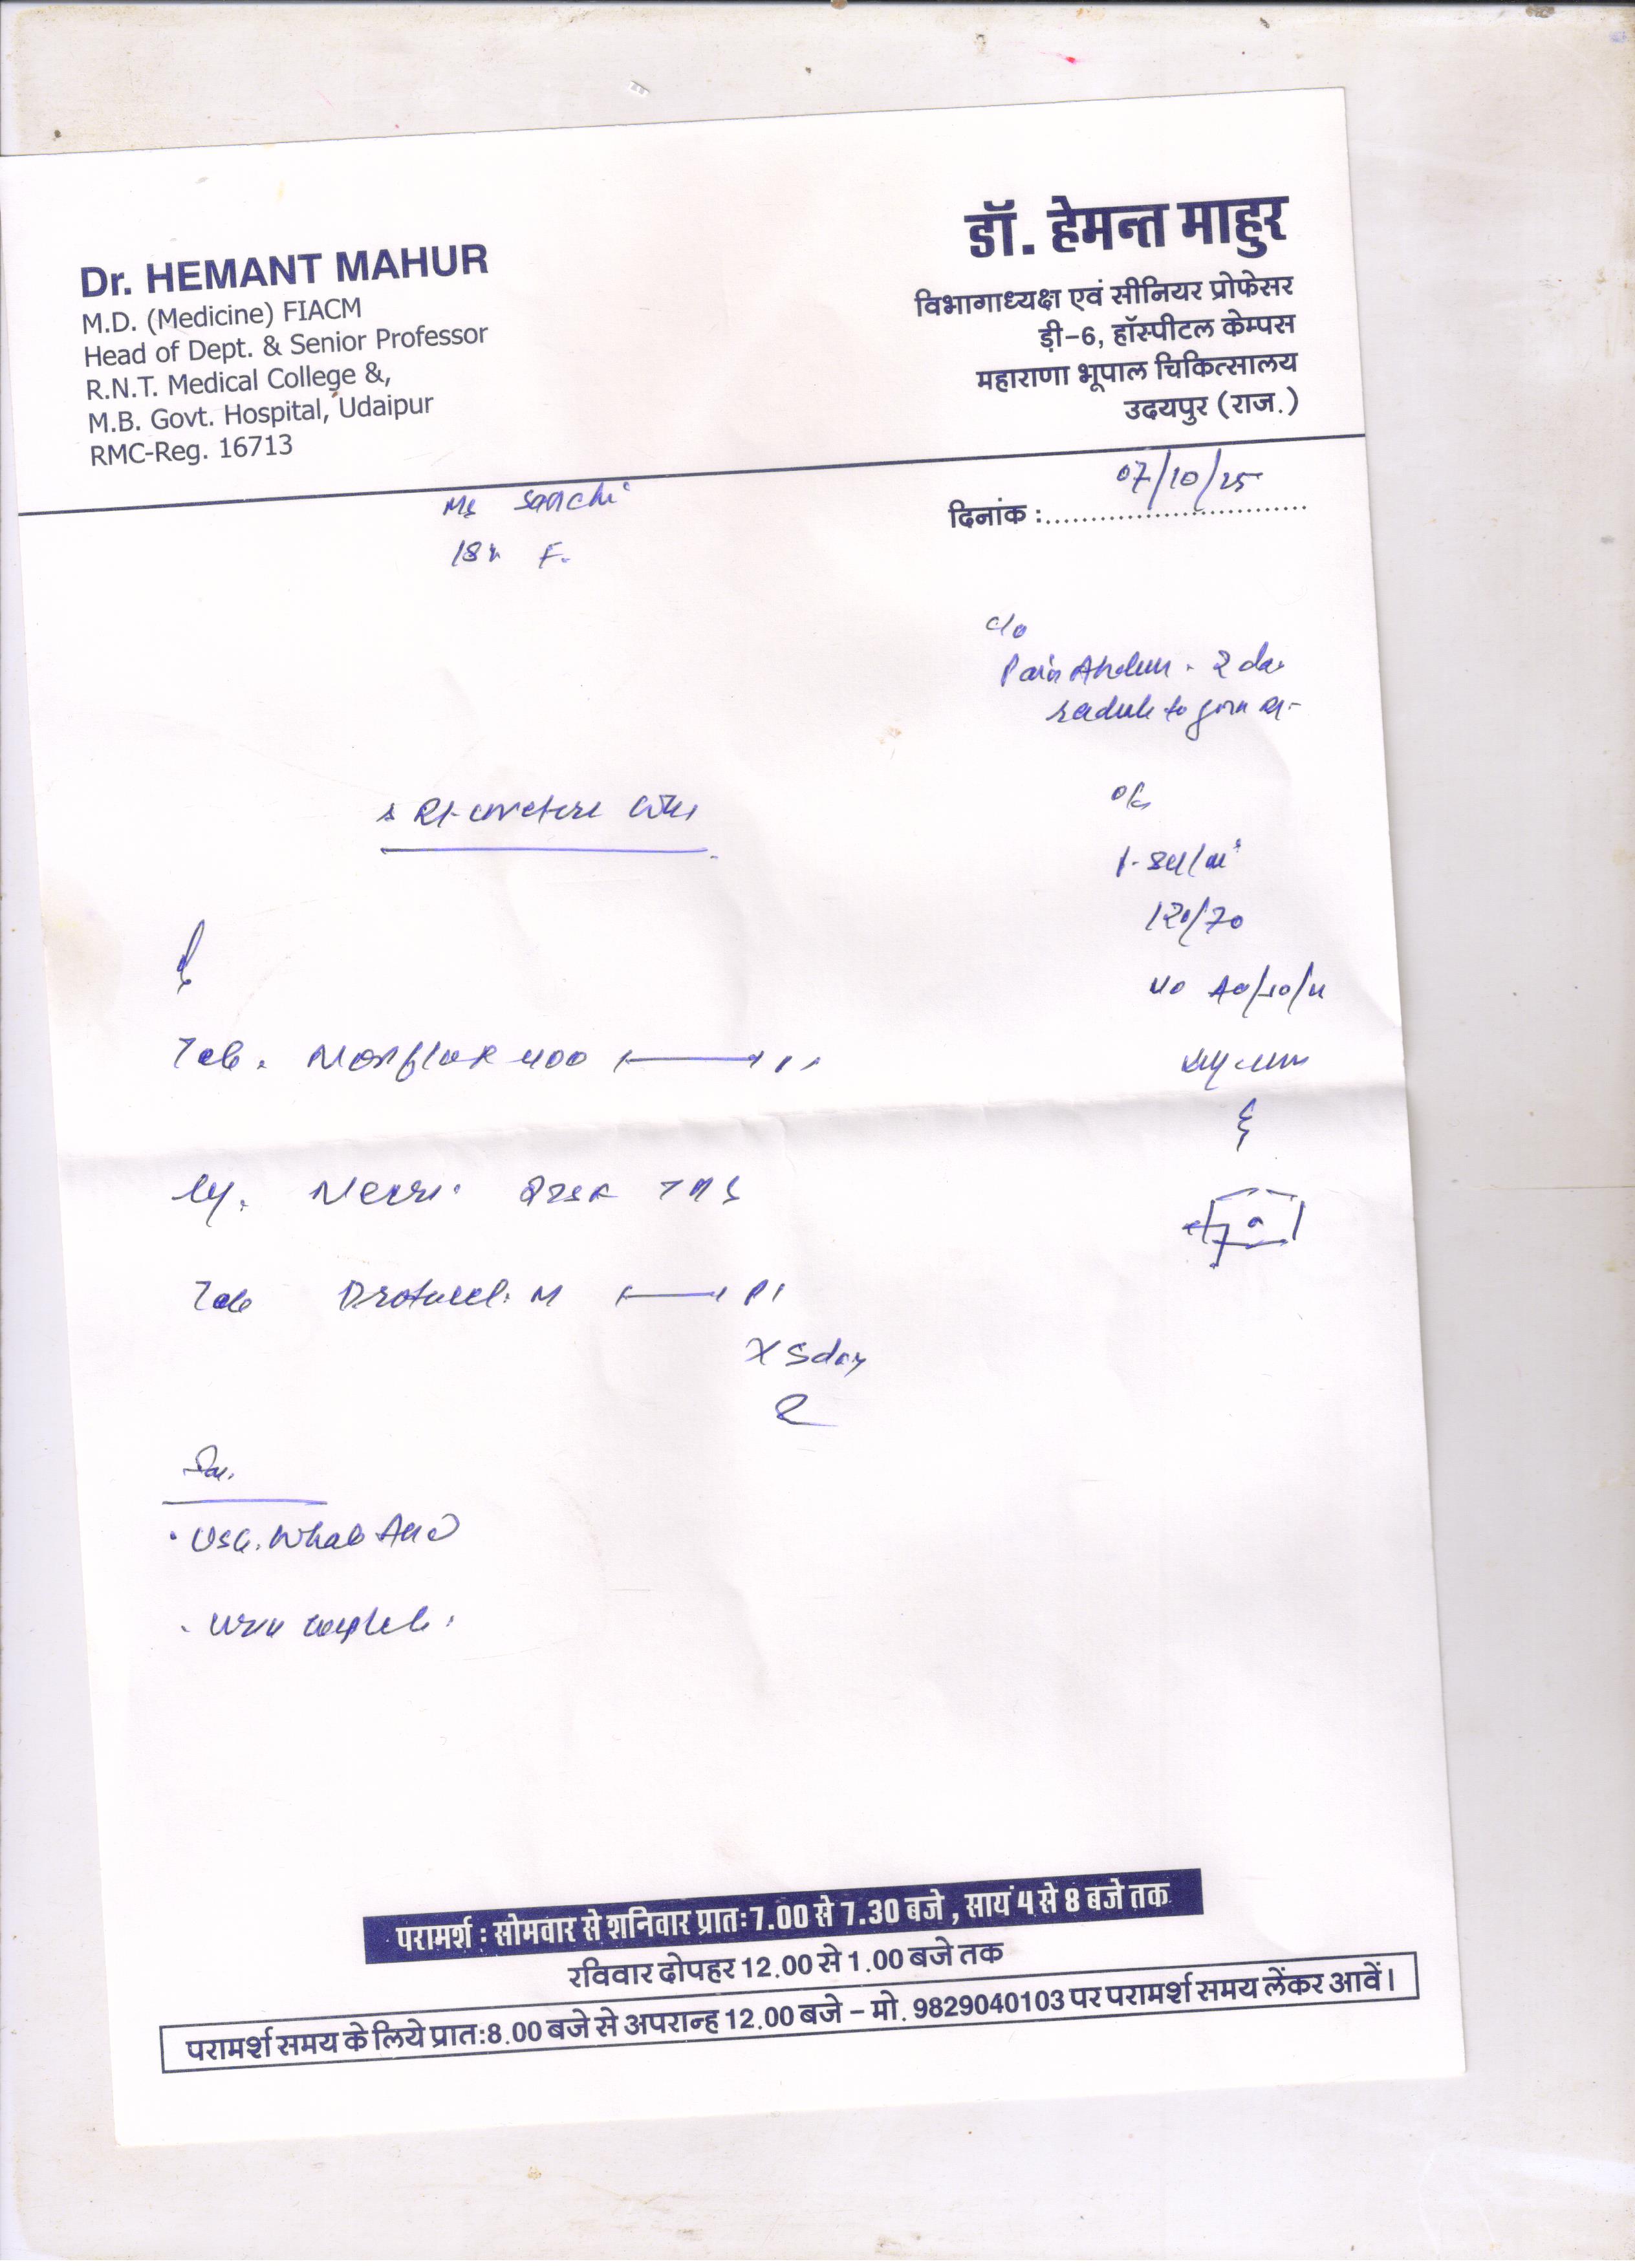 Dr. HEMANT MAHUR
M.D. (Medicine) FIACM
Head of Dept. & Senior Professor
R.N.T. Medical College &,
M.B. Govt. Hospital, Udaipur
RMC-Reg. 16713
डॉ. हेमन्त माहुर
विभागाध्यक्ष एवं सीनियर प्रोफेसर
ड़ी-6, हॉस्पीटल केम्पस
महाराणा भूपाल चिकित्सालय
उदयपुर (राज.)
दिनांक : 07/10/25
Ms Sanchi
18 F.
c/o
Pain Abdomen - 2 day
radiate to groin
o/e
120/70
Tab. Norflox 400
Tab M
x 5 day
USG. Whole Abd
Urine complete.
परामर्श : सोमवार से शनिवार प्रातः 7.00 से 7.30 बजे , सायं 4 से 8 बजे तक
रविवार दोपहर 12.00 से 1.00 बजे तक
परामर्श समय के लिये प्रातः 8.00 बजे से अपरान्ह 12.00 बजे - मो. 9829040103 पर परामर्श समय लेंकर आवें।